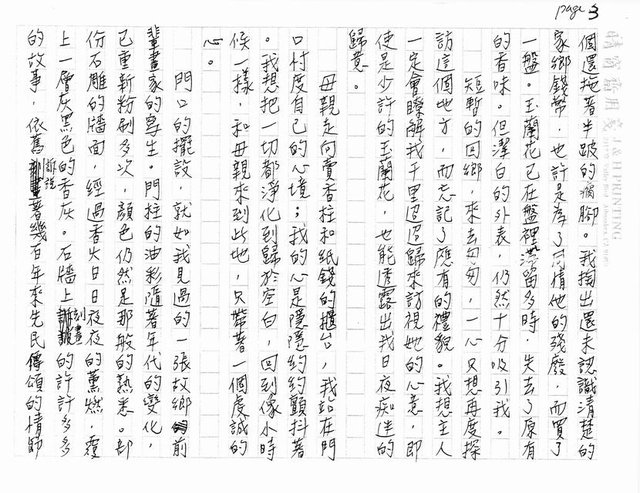 page 3
個還拖著半跛的瘸腳。我掏出還未認識清楚的
家鄉錢幣,也許是為了同情他的殘廢,而買了
一盤。玉蘭花已在盤裡滯留多時,失去了原有
的香味。但潔白的外表,仍然十分吸引我。
短暫的回鄉,來去匆匆,一心只想再度探
訪這個地方,而忘記了應有的禮貌。我想主人
一定會瞭解我千里迢迢歸來訪視她的心意,即
使是少許的玉蘭花,也能透露出我日夜痴迷的
歸意。
母親走向賣香柱和紙錢的攤台,我站在門
口忖度自己的心境;我的心是隱隱約約顫抖著
。我想把一切都淨化到歸於空白,回到像小時
候一樣,和母親來到此地,只帶著一個虔誠的
心。
門口的擺設,就如我見過的一張故鄉前
輩畫家的寫生。門柱的油彩隨著年代的變化,
已重新粉刷多次,顏色仍然是那般的熟悉。部
份石雕的牆面,經過香火日日夜夜的薰燃,覆
上一層灰黑色的香灰。石牆上刻畫的許許多多
的故事,依舊訴說著幾百年來先民傳頌的情節
J & H PRINTING